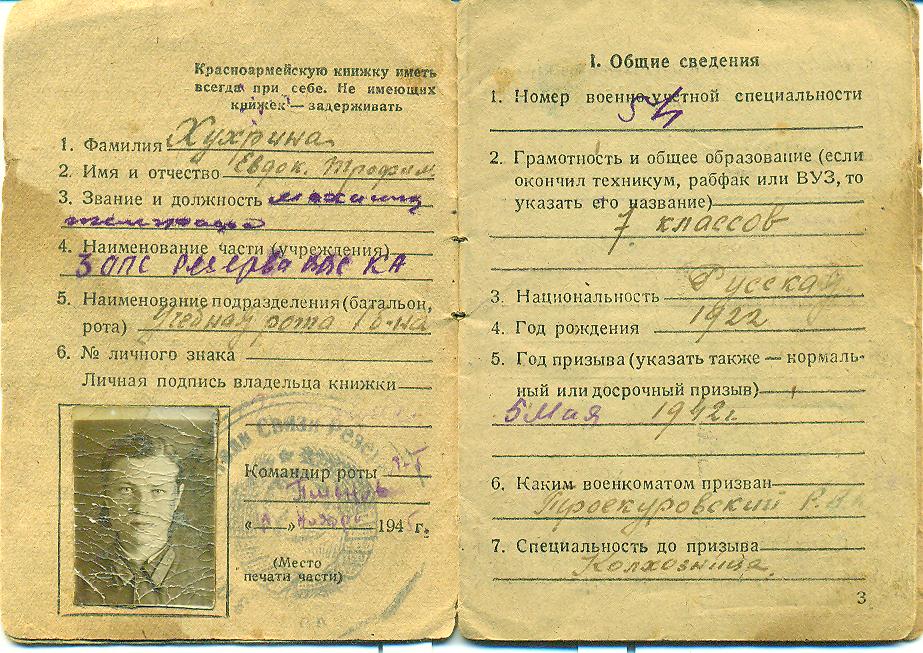 Красноармейскую книжку иметь
всегда при себе. Не имеющих
книжек — задерживать
1. Фамилия Хухрина
2. Имя и отчество Евдок. Трофим.
3. Звание и должность
4. Наименование части (учреждения)
3 ОПС Резерва ВВС КА
5. Наименование подразделения (батальон,
рота) Учебная рота 1 б-на
6. № личного знака
Личная подпись владельца книжки
Связи Резе
Командир роты
„ “ 194 г.
(Место
печати части)
I. Общие сведения
1. Номер военно-учетной специальности
54
2. Грамотность и общее образование (если
окончил техникум, рабфак или ВУЗ, то
указать его название)
7 классов
3. Национальность Русская
4. Год рождения 1922
5. Год призыва (указать также — нормаль-
ный или досрочный призыв)
5 Мая 1942 г.
6. Каким военкоматом призван
Троекуровский
7. Специальность до призыва
Колхозница.
3